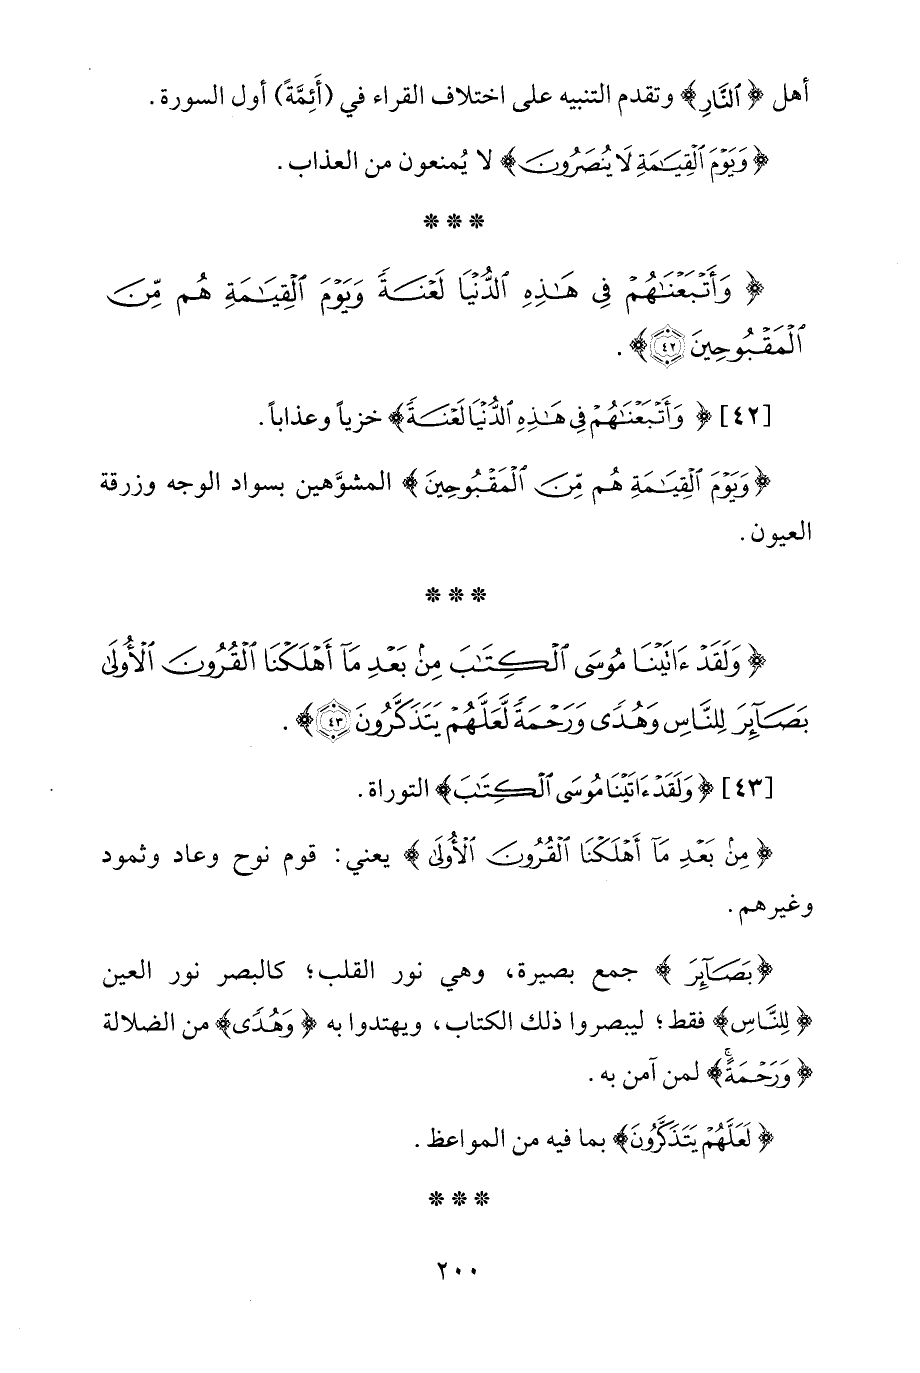 أهل ﴿ ٱلنَّارِ﴾ وتقدم التنبيه على اختلاف القراء في (أَئِمَّةً) أول السورة.
﴿ وَيَوْمَ ٱلْقِيَٰمَةِ لَا يُنصَرُونَ﴾ لا يُمنعون من العذاب.
***
﴿ وَأَتْبَعْنَٰهُمْ فِى هَٰذِهِ ٱلدُّنْيَا لَعْنَةً وَيَوْمَ ٱلْقِيَٰمَةِ هُم مِّنَ
ٱلْمَقْبُوحِينَ ٤٢﴾.
[٤٢] ﴿ وَأَتْبَعْنَٰهُمْ فِى هَٰذِهِ ٱلدُّنْيَا لَعْنَةً﴾ خزياً وعذاباً.
﴿وَيَوْمَ ٱلْقِيَٰمَةِ هُم مِّنَ ٱلْمَقْبُوحِينَ ﴾ المشوَّهين بسواد الوجه وزرقة
العيون.
***
﴿ وَلَقَدْ ءَاتَيْنَا مُوسَى ٱلْكِتَٰبَ مِنۢ بَعْدِ مَآ أَهْلَكْنَا ٱلْقُرُونَ ٱلْأُولَىٰ
بَصَآئِرَ لِلنَّاسِ وَهُدًى وَرَحْمَةً لَّعَلَّهُمْ يَتَذَكَّرُونَ ٤٣﴾.
[٤٣] ﴿ وَلَقَدْ ءَاتَيْنَا مُوسَى ٱلْكِتَٰبَ﴾ التوراة.
﴿ مِنۢ بَعْدِ مَآ أَهْلَكْنَا ٱلْقُرُونَ ٱلْأُولَىٰ ﴾ يعني: قوم نوح وعاد وثمود
وغيرهم.
﴿بَصَآئِرَ ﴾ جمع بصيرة، وهي نور القلب؛ كالبصر نور العين
﴿ لِلنَّاسِ﴾ فقط؛ ليبصروا ذلك الكتاب، ويهتدوا به ﴿ وَهُدًى﴾ من الضلالة
﴿ وَرَحْمَةً﴾ لمن آمن به.
﴿ لَعَلَّهُمْ يَتَذَكَّرُونَ﴾ بما فيه من المواعظ.
***
٢٠٠